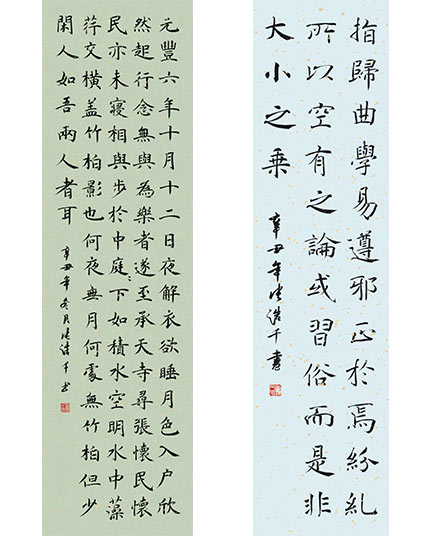 元豐六年十月十二日夜解衣欲睡月色入户欣
然起行念無與為樂者遂至承天寺尋張懷民懷
民亦未寢相與步於中庭下如積水空明水中藻
荇交横盖竹柏影也何夜無月何處無竹柏但少
閑人如吾兩人者耳
辛丑年冬月
指歸曲學易遵邪正於焉紛糺
所以空有之論或習俗而是非
大小之乗
辛丑年